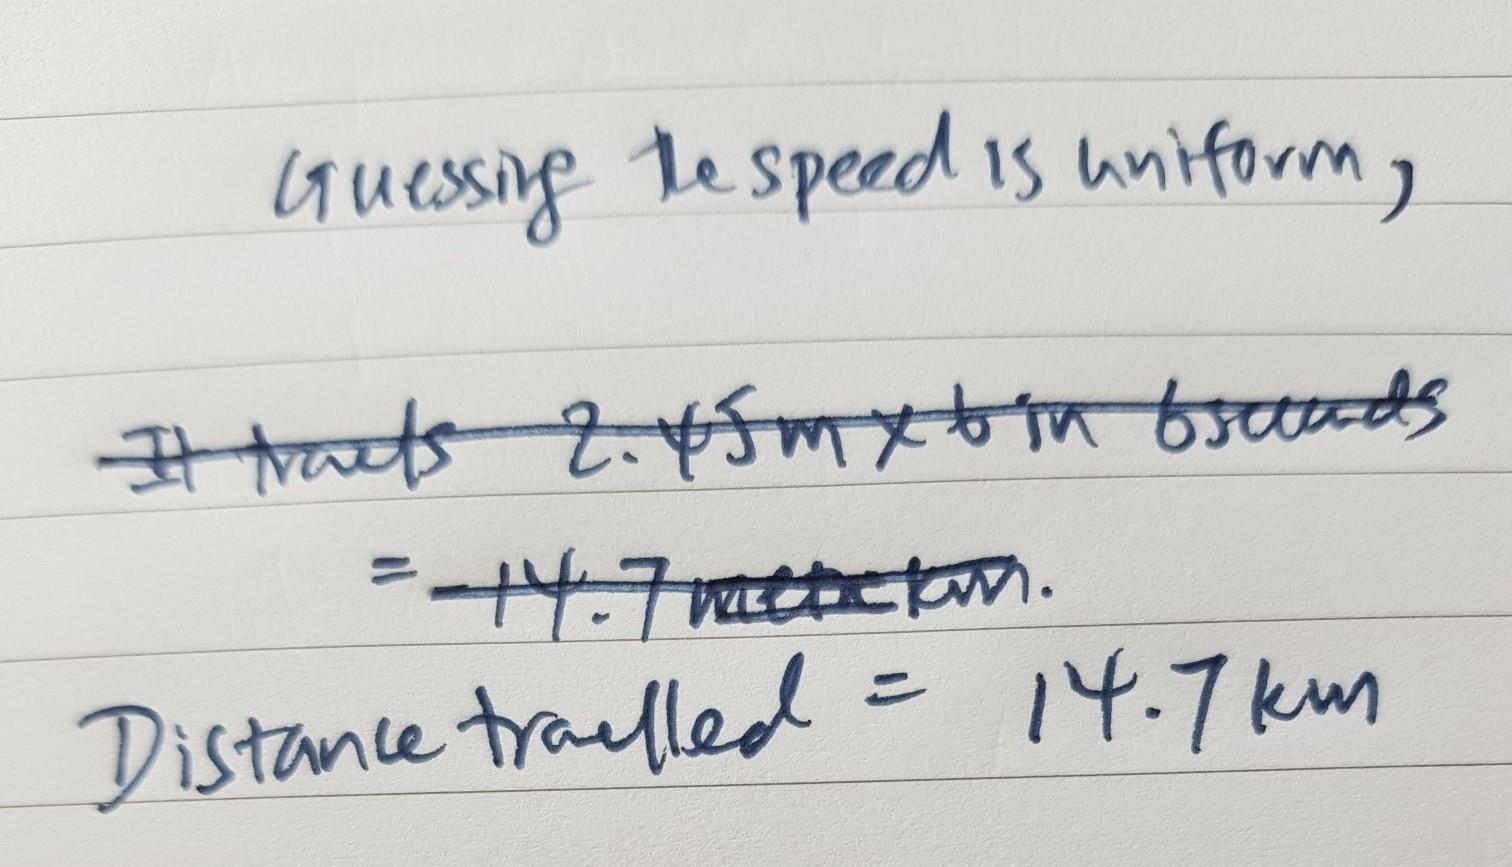 Guessing the speed is uniform,
It traels 2.45m x 6 in 6 seconds
= 14.7 km.
Distance traelled = 14.7 km